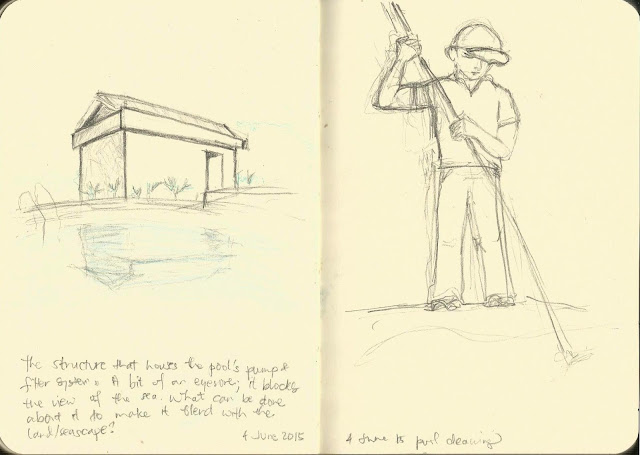 The structure that houses the pool's pump &
filter system. A bit of an eyesore; it blocks
the view of the sea. What can be done
about it to make it blend with the
land/seascape?
4 June 2015
4 June 15 pool cleaning